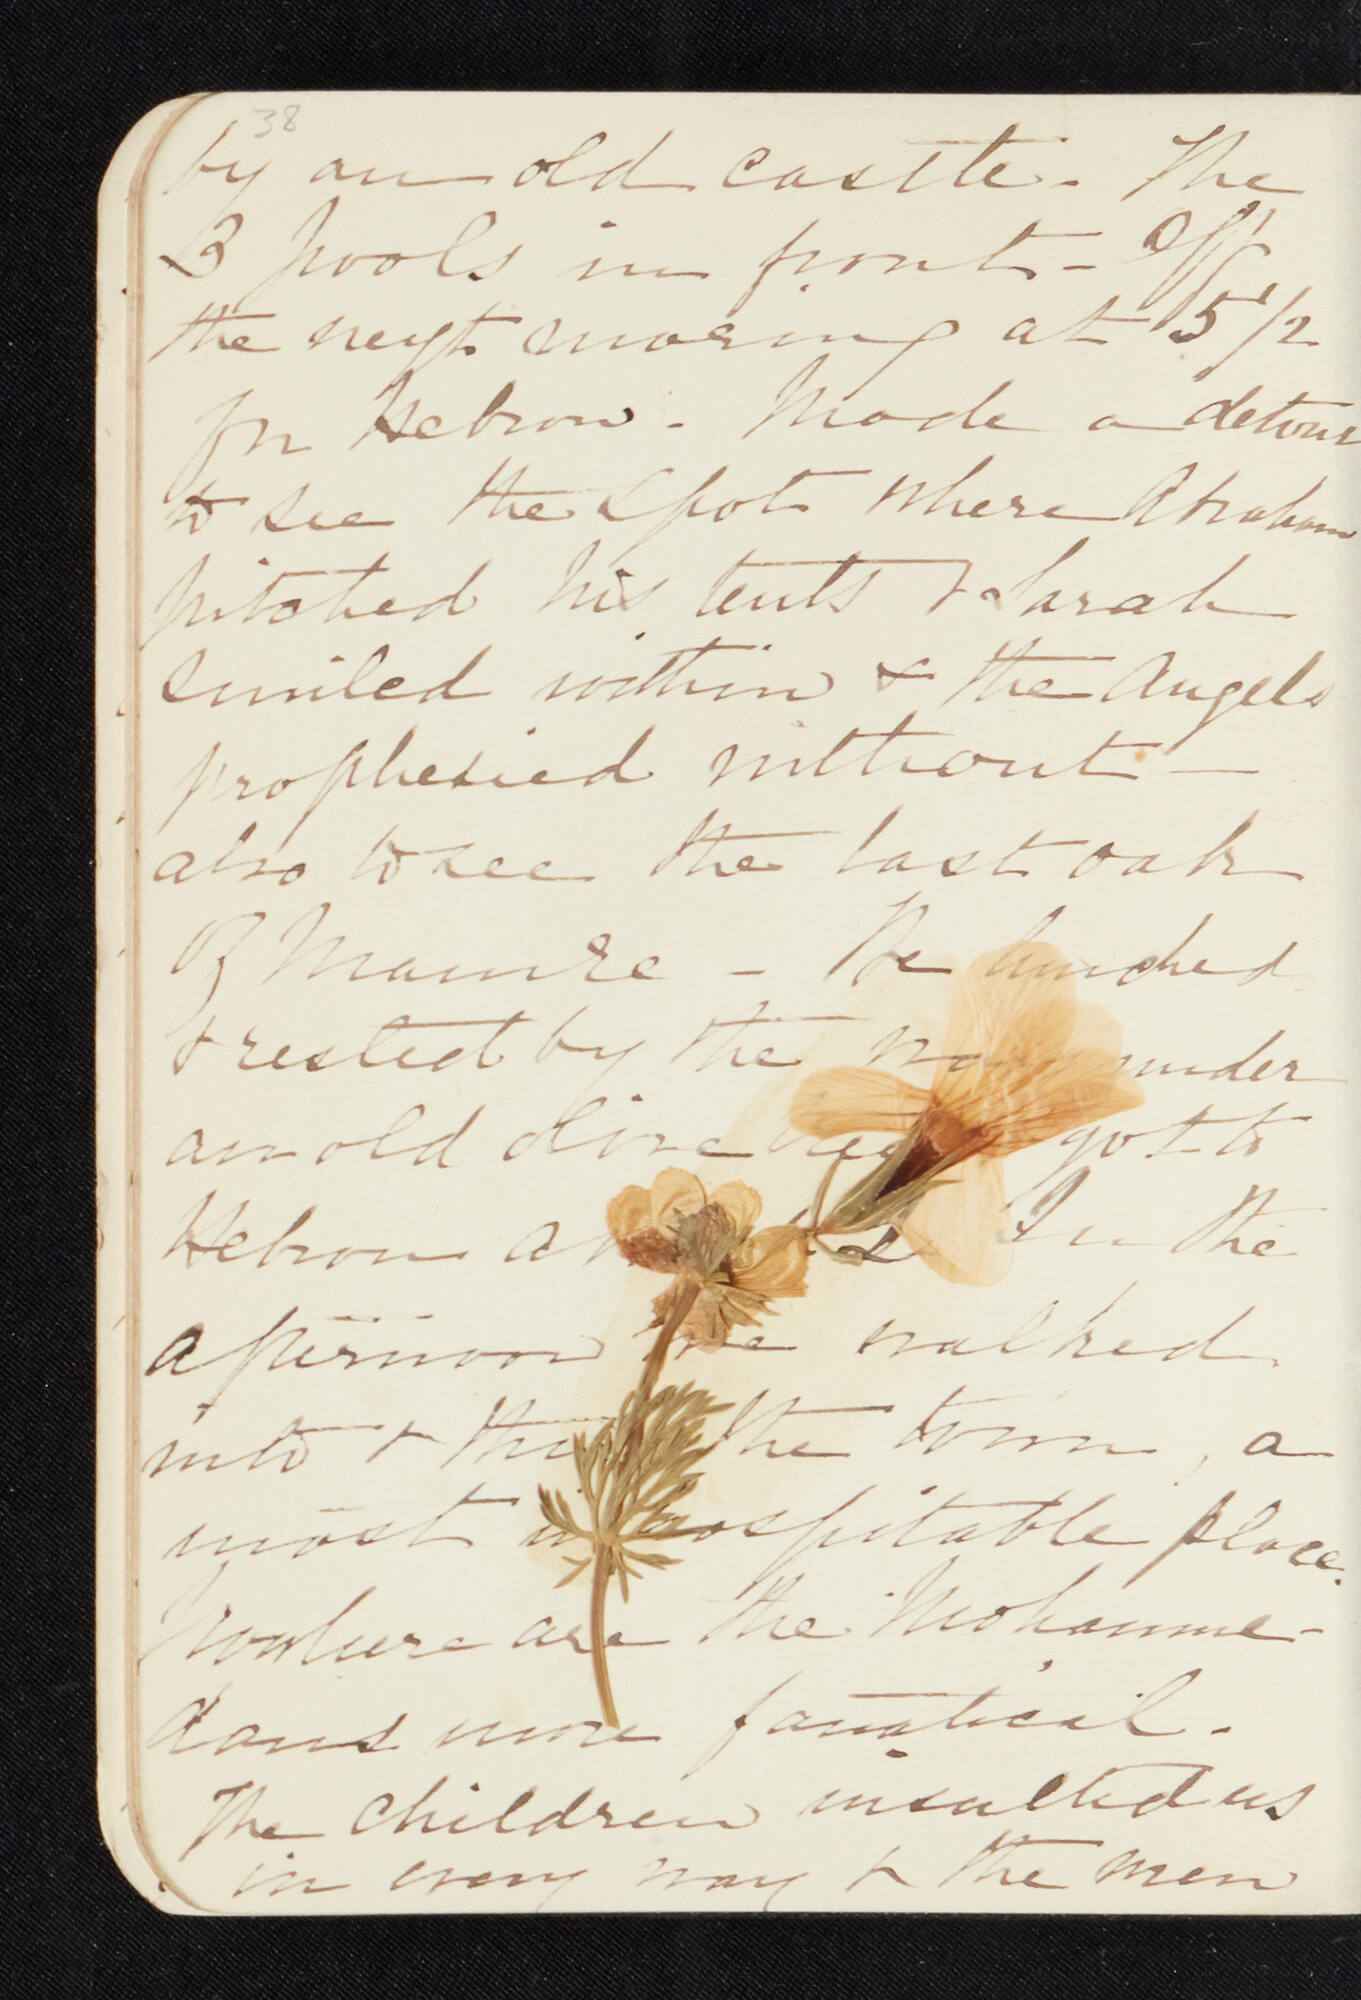 38
by an old castle. The
3 pools in front - Off
the next moring at 5 1/2
for Hebron. Made a detour
to see the spot where Abraham
pitched his tents & Sarah
smiled within & the Angels
prophesied without -
also to see the last oak
of Mamre - We lunched
& rested by the way under
an old olive tree got to
Hebron at 2 In the
afternoon we walked
into & thro the town, a
most inhospitable place.
Nowhere are the Mohamme-
dans more fanatical.
The children insulted us
in every way & the men